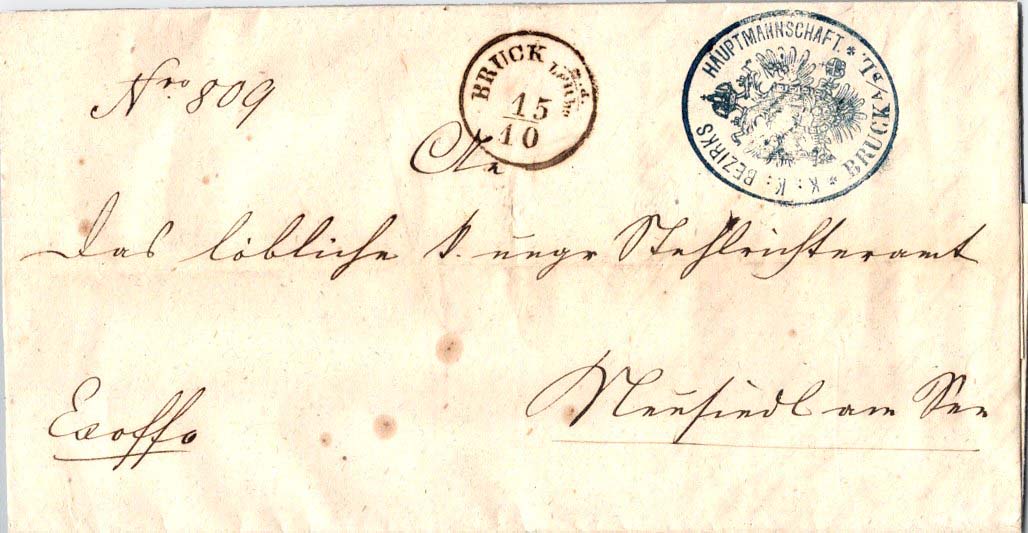 Nro 809
BRUCK a. d. Leitha
15
10
K: K: BEZIRKS HAUPTMANNSCHAFT. * BRUCK a/L. *
An
Das löbliche k. ungr Stuhlrichteramt
Exoffo
Neusiedl am See